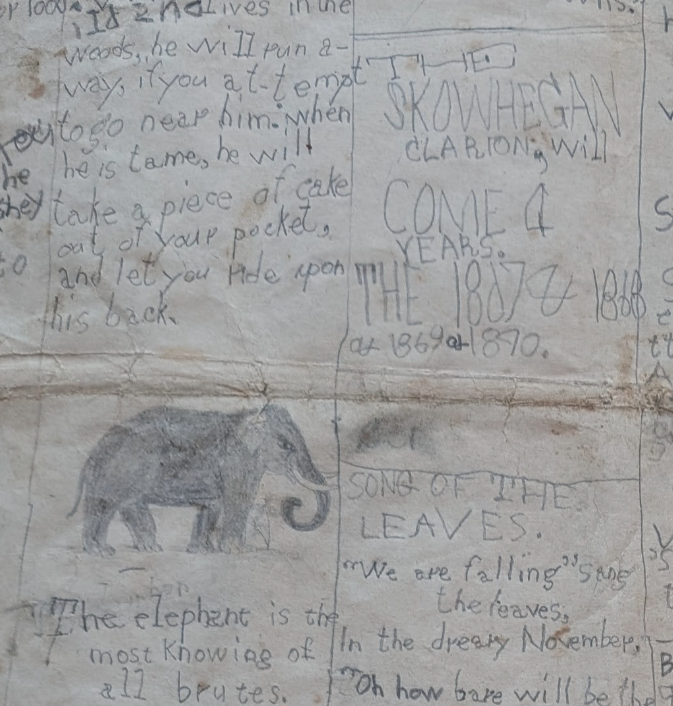 wild and lives in the
woods, he will run a-
way, if you at-tempt
to go near him. when
he is tame, he will
take a piece of cake
out of your pocket,
and let you ride upon
his back.
The elephant is the
most Knowing of
all brutes.
THE
SKOWHEGAN
CLARION; Will
COME 4
YEARS.
THE 1867 & 1868
& 1869 & 1870.
SONG OF THE
LEAVES.
"We are falling" Sang
the leaves,
In the dreary November,
"Oh how bare will be the